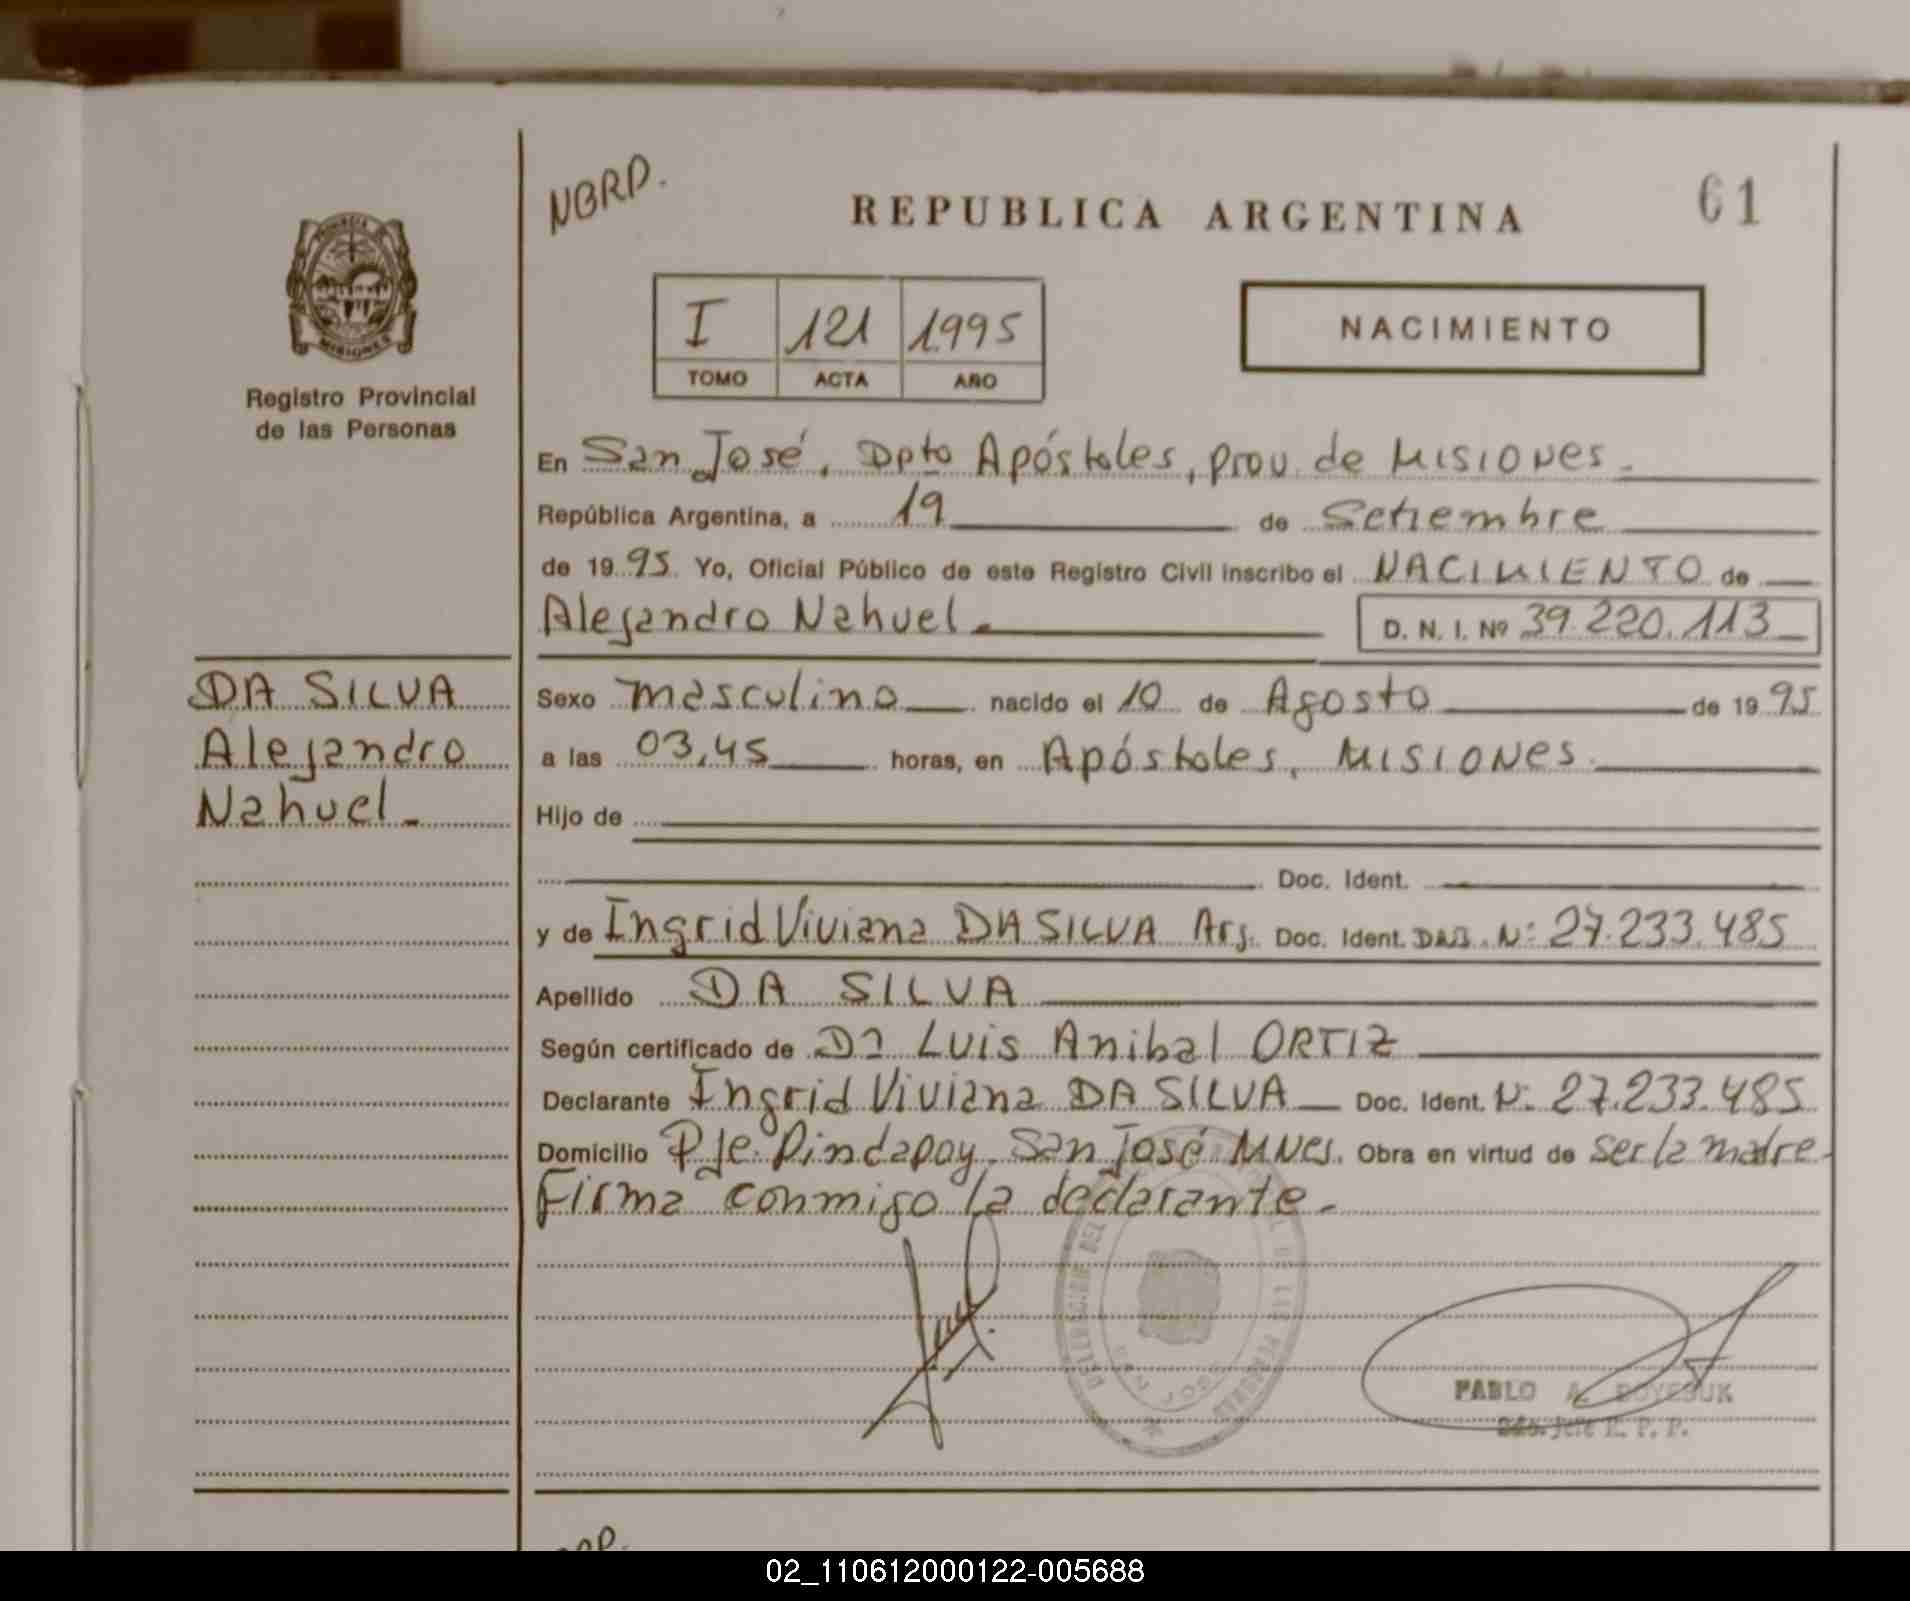 NBRP.
REPUBLICA ARGENTINA
61
PROVINCIA
MISIONES
Registro Provincial
de las Personas
I 121 1995
TOMO ACTA AÑO
NACIMIENTO
En San José, Dpto Apóstoles, prov. de Misiones.
República Argentina, a 19 de Setiembre
de 1995 Yo, Oficial Público de este Registro Civil inscribo el NACIMIENTO de
Alejandro Nahuel.
D. N. I. Nº 39.220.113
DA SILVA
Alejandro
Nahuel.
Sexo masculino nacido el 10 de Agosto de 1995
a las 03,45 horas, en Apóstoles, Misiones.
Hijo de
Doc. Ident.
y de Ingrid Viviana DA SILVA Arg. Doc. Ident. DNI. Nº 27.233.485
Apellido DA SILVA
Según certificado de Dr Luis Anibal ORTIZ
Declarante Ingrid Viviana DA SILVA Doc. Ident. Nº 27.233.485
Domicilio Pje Pindapoy. San José Mnes. Obra en virtud de ser la madre.
Firma conmigo la declarante.
DELEGACION DEL DE LAS PERSONAS
SAN JOSE
PABLO A.
Jefe R. P. P.
02_110612000122-005688